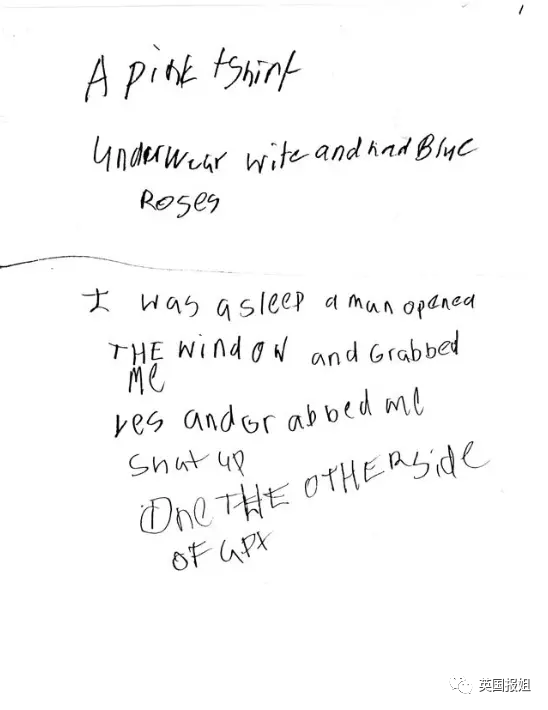 A pink tshirt
Underwear wite and had Blue
Roses
I was asleep a man opened
THE WindOW and Grabbed
Me
yes and Grabbed me
shut up
One THE OTHER side
OF apx
英国报姐